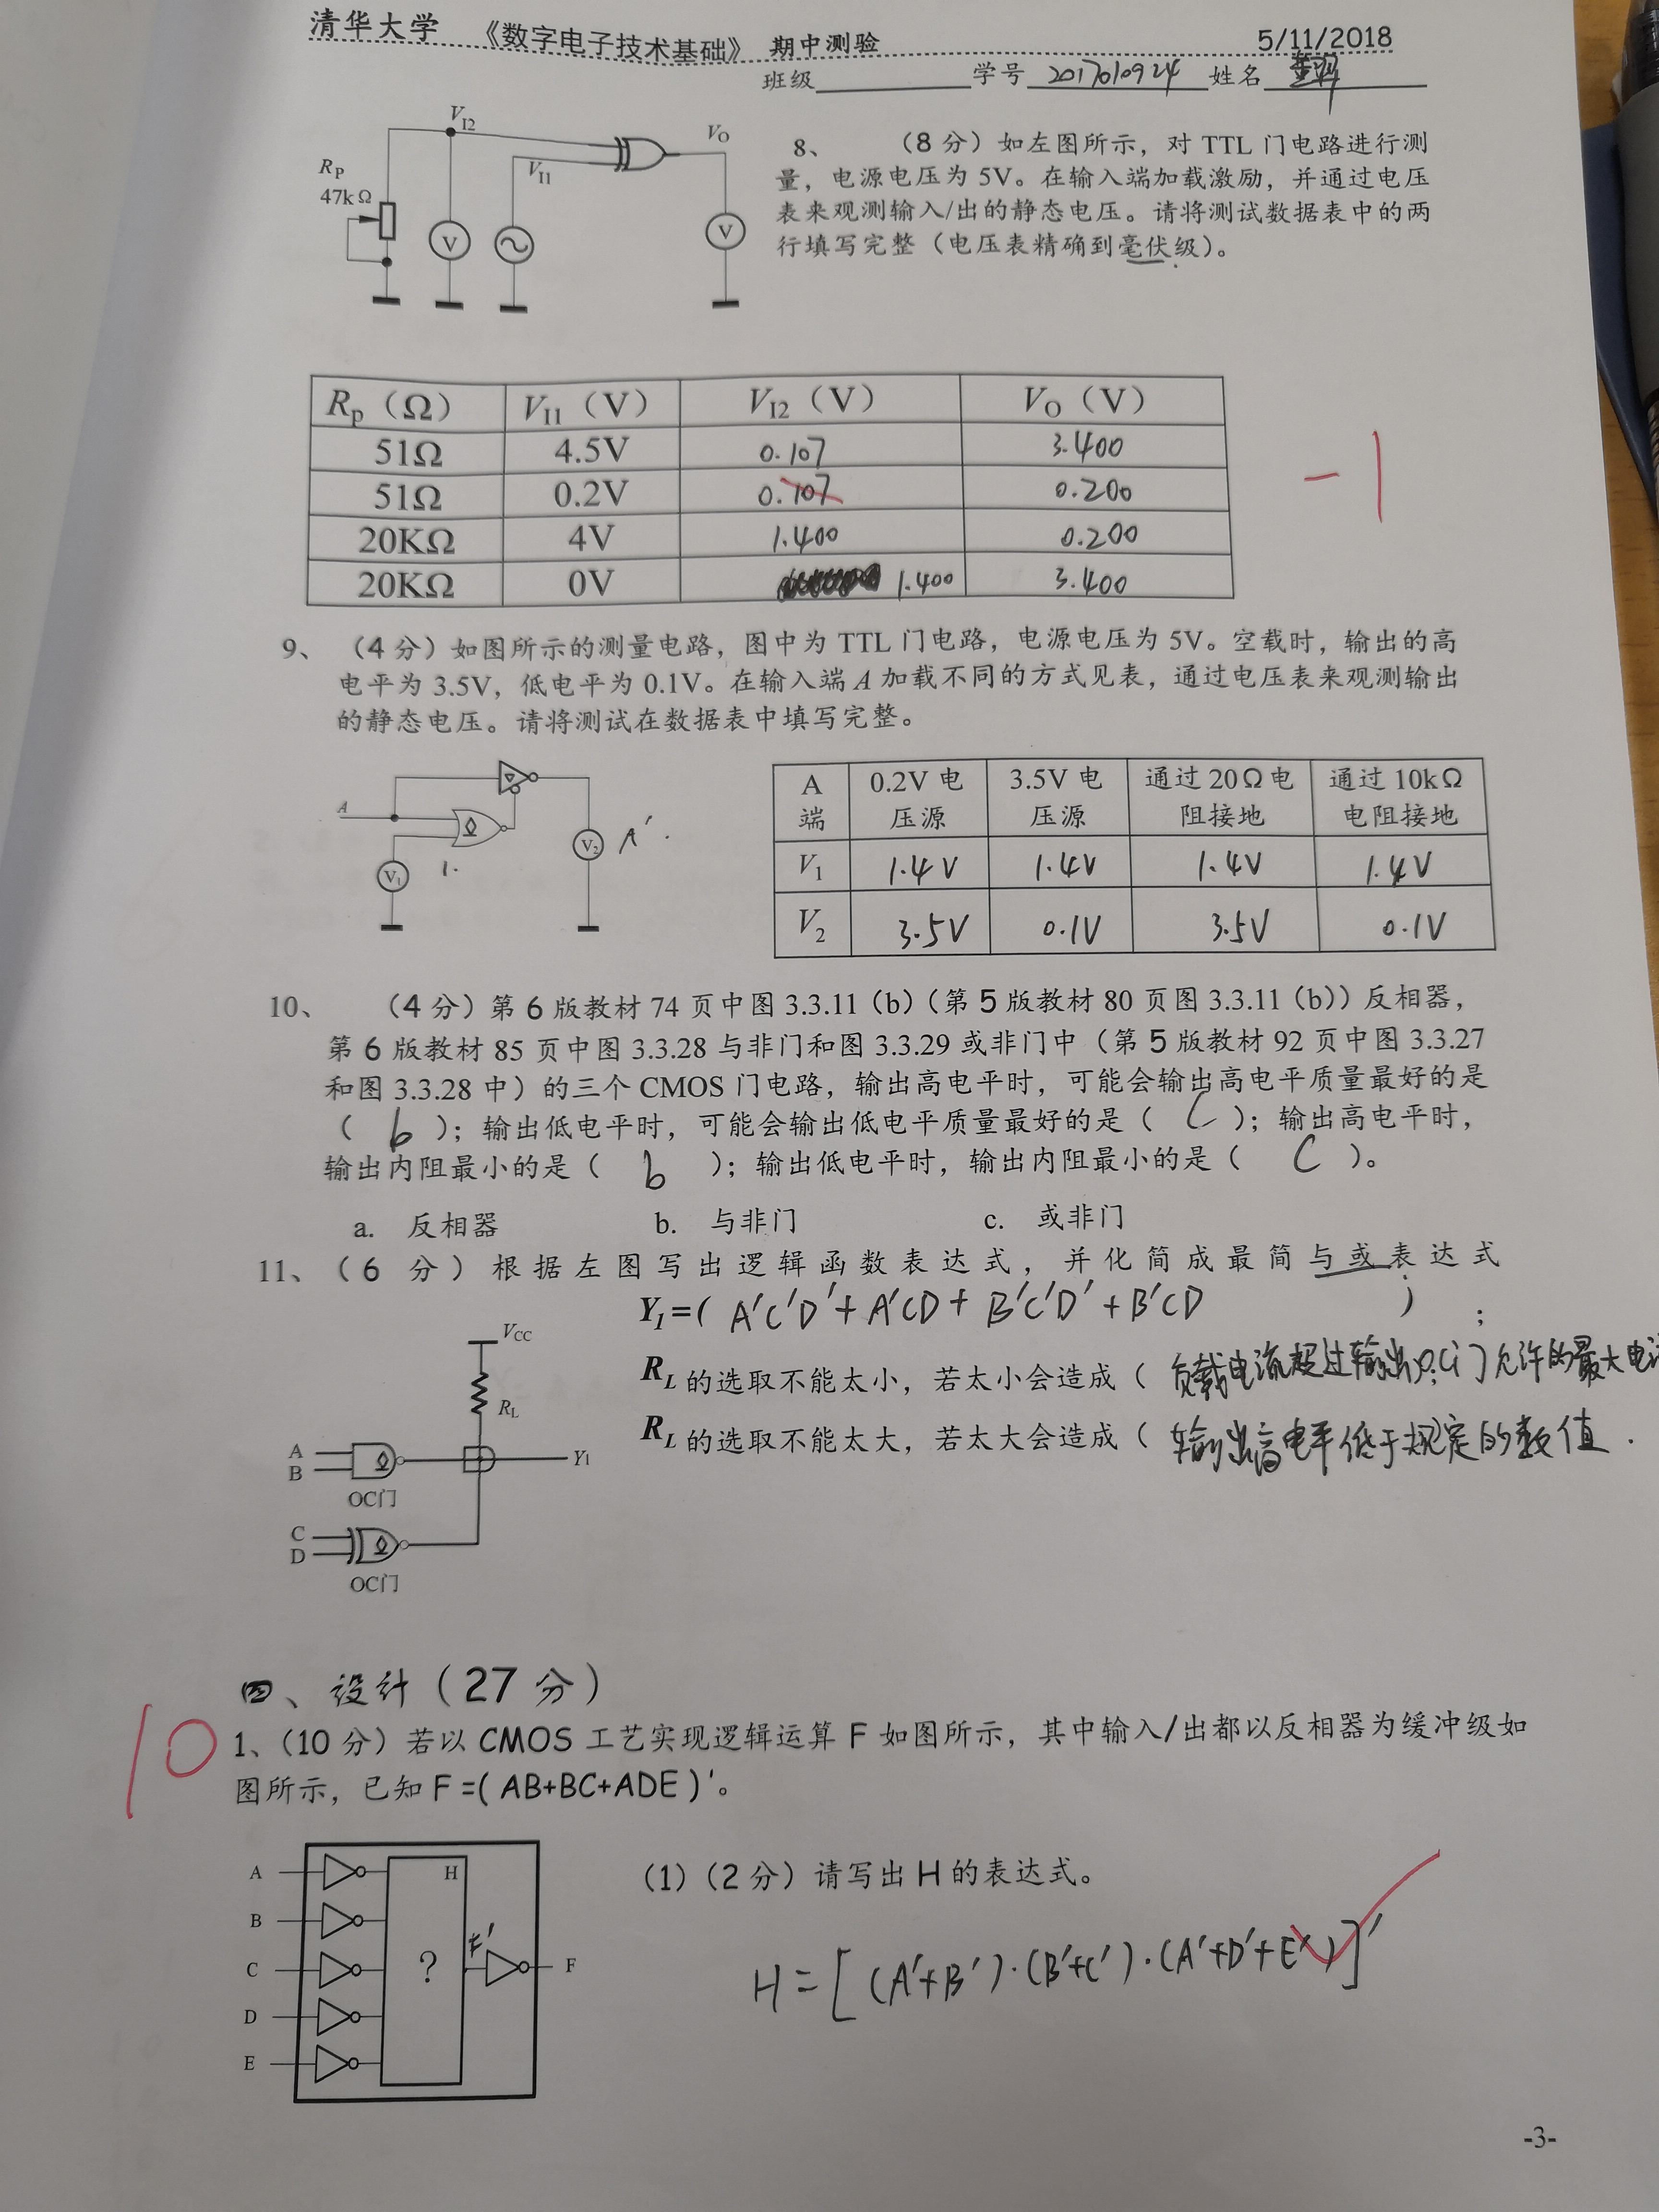 清华大学 《数字电子技术基础》 期中测验 5/11/2018
班级 学号 2017010924 姓名
V_I2
V_O
R_P
47kΩ
V_I1
V
V
8、 （8 分）如左图所示，对 TTL 门电路进行测
量，电源电压为 5V。在输入端加载激励，并通过电压
表来观测输入/出的静态电压。请将测试数据表中的两
行填写完整（电压表精确到毫伏级）。
R_p（Ω） V_I1（V） V_I2（V） V_O（V）
51Ω 4.5V 0.107 3.400
51Ω 0.2V 0.107 0.200
20KΩ 4V 1.400 0.200
20KΩ 0V 1.400 3.400
-1
9、 （4 分）如图所示的测量电路，图中为 TTL 门电路，电源电压为 5V。空载时，输出的高
电平为 3.5V，低电平为 0.1V。在输入端 A 加载不同的方式见表，通过电压表来观测输出
的静态电压。请将测试在数据表中填写完整。
A
V₁
1.
V₂
A'.
A端 0.2V 电压源 3.5V 电压源 通过 20Ω电阻接地 通过 10kΩ电阻接地
V₁ 1.4V 1.4V 1.4V 1.4V
V₂ 3.5V 0.1V 3.5V 0.1V
10、 （4 分）第 6 版教材 74 页中图 3.3.11（b）（第 5 版教材 80 页图 3.3.11（b））反相器，
第 6 版教材 85 页中图 3.3.28 与非门和图 3.3.29 或非门中（第 5 版教材 92 页中图 3.3.27
和图 3.3.28 中）的三个 CMOS 门电路，输出高电平时，可能会输出高电平质量最好的是
（ b ）；输出低电平时，可能会输出低电平质量最好的是（ C ）；输出高电平时，
输出内阻最小的是（ b ）；输出低电平时，输出内阻最小的是（ C ）。
a. 反相器 b. 与非门 c. 或非门
11、（6 分）根据左图写出逻辑函数表达式，并化简成最简与或表达式
Y₁=( A'C'D'+A'CD+B'C'D'+B'CD ) ;
R_L 的选取不能太小，若太小会造成（ 负载电流超过输出OC门允许的最大电
R_L 的选取不能太大，若太大会造成（ 输出高电平低于规定的数值.
V_CC
R_L
A
B
OC门
Y₁
C
D
OC门
四、设计（27 分）
10
1、（10 分）若以 CMOS 工艺实现逻辑运算 F 如图所示，其中输入/出都以反相器为缓冲级如
图所示，已知 F =( AB+BC+ADE )'。
A
B
C
D
E
H
?
F'
F
（1）（2 分）请写出 H 的表达式。
H = [(A'+B')·(B'+C')·(A'+D'+E')]'
-3-